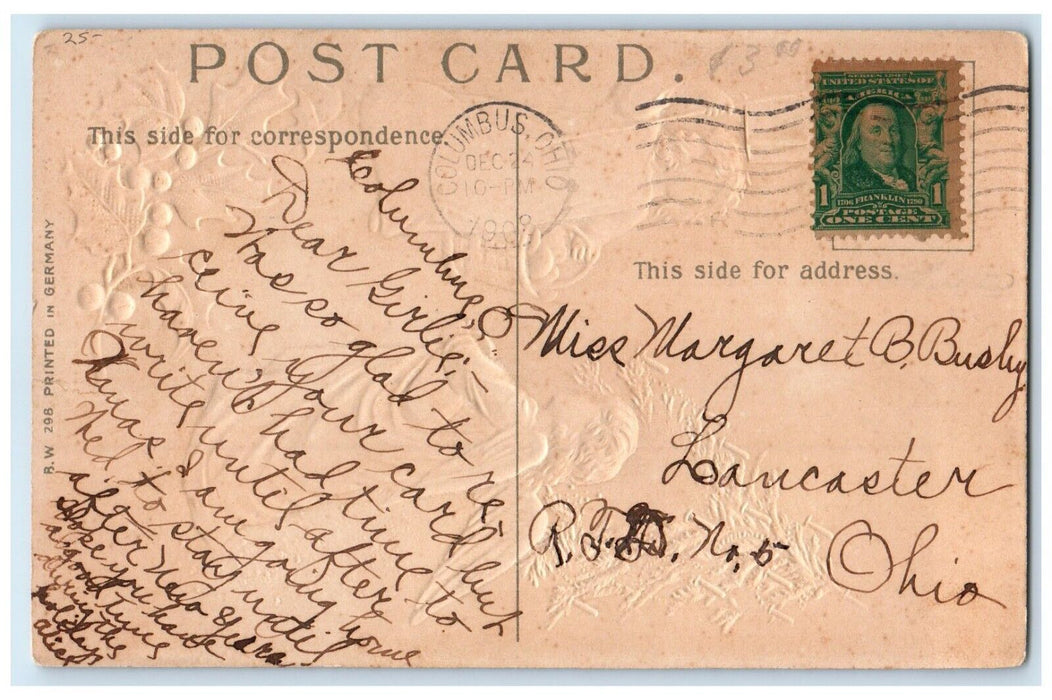 25-
$3.00
POST CARD.
This side for correspondence.
COLUMBUS, OHIO
DEC 24
10-PM
1908
SERIES 1902
UNITED STATES OF
AMERICA
1 1
1706 FRANKLIN 1790
POSTAGE
ONE CENT
This side for address.
B.W 298 PRINTED IN GERMANY
Columbus, O
Dear Girlie:—
Was so glad to re-
ceive your card but
haven't had time to
write until after
Xmas I am going home
Wed to stay until
after New Years
Hope you have
a good time
during the
holidays
Alice
Miss Margaret B. Busby
Lancaster
R.F.D. No. 5 Ohio